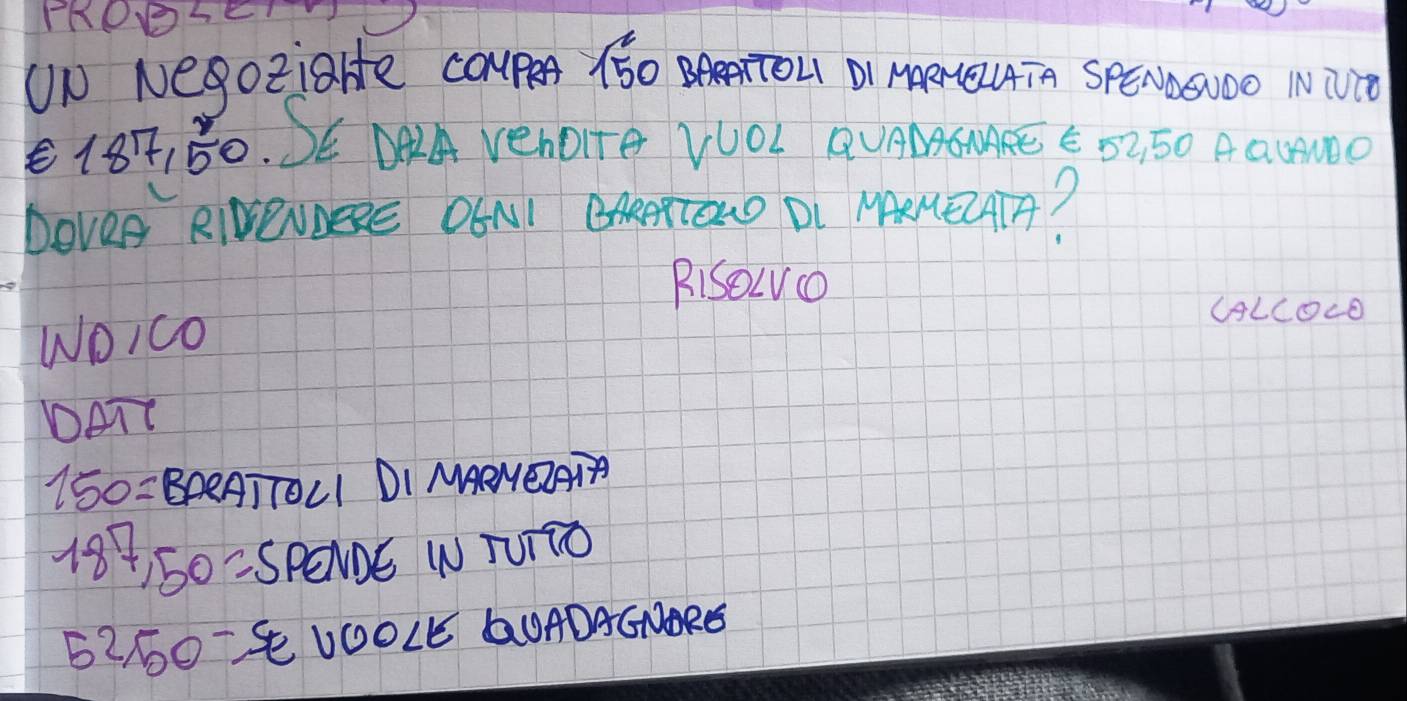 PROBLEMA
UN NEGOZIANTE COMPRA 150 BARATTOLI DI MARMELLATA SPENDENDO IN TUTO
€ 187,50. SE DALLA VENDITA VUOL QUADAGNARE € 52,50 A QUANDO
DOVRÀ RIVENDERE OGNI BARATTOLO DI MARMELATA?
RISOLVO
CALCOLO
INDICO
DATI
150=BARATTOLI DI MARMELATA
187,50=SPENDE IN TUTTO
52,50=SE VUOLE QUADAGNARE